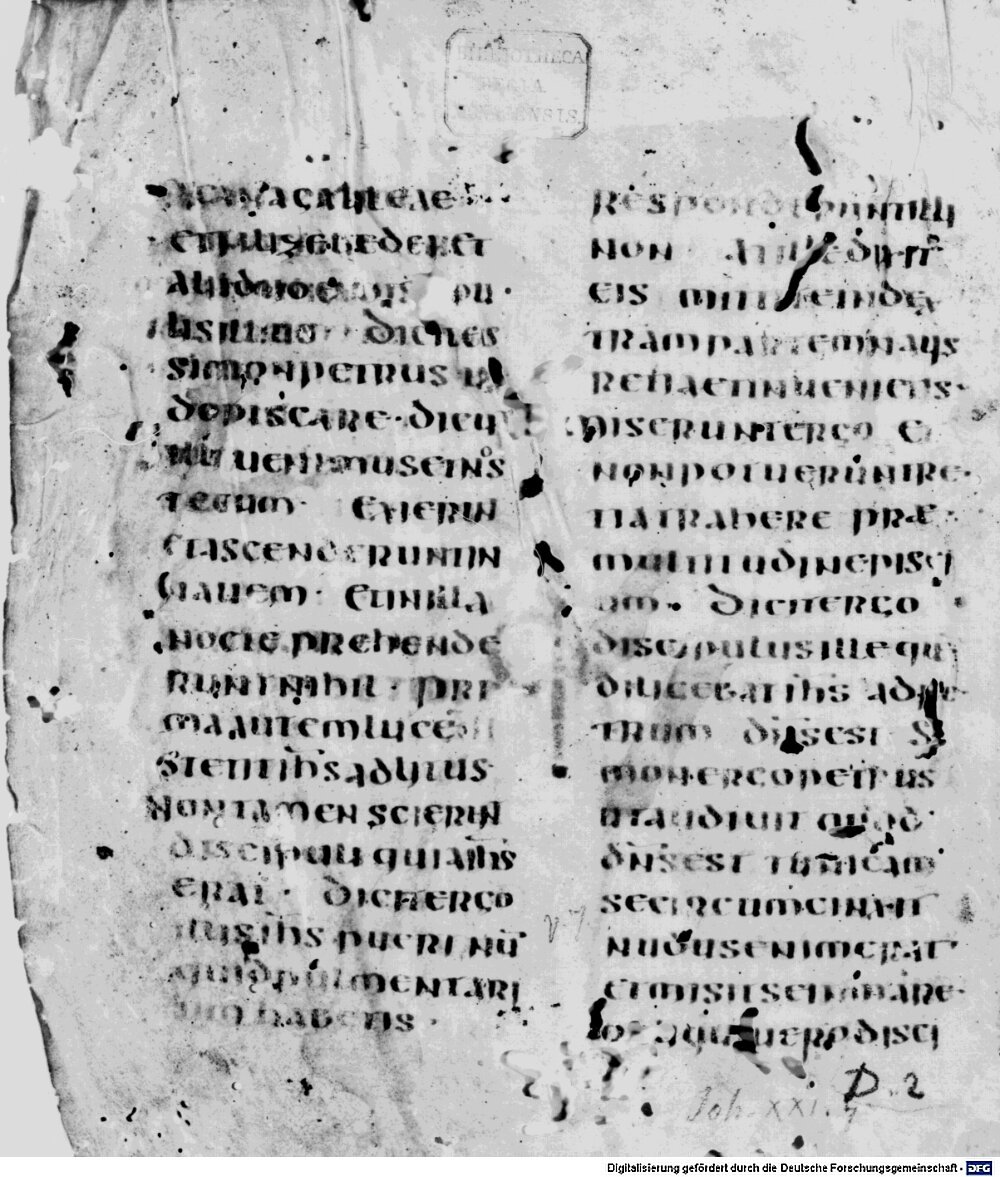 BIBLIOTHECA
REGIA
MONACENSIS
acanagalileae
etfiizebedei et
aliidno
dicit eis
simonpetrus ua
dopiscare · dicu
uenimusetnos
tecum · exierun
etascenderuntin
nauem · etinilla
nocte prehende
runtnihil · pri
maautemluce
stetit ihsadlitus
nontamenscierun
discipuli quiaihs
erat · dicitergo
illisihs pueri nū
quidpulmentari
um habetis ·
Responderuntilli
non
eis mittiteindex
trampartemnauis
retiaetinuenietis·
miseruntergo et
nonpotuerūntre·
tiatrahere præ·
multitudinepisci
um · dicitergo
discipulusillequē
diligebatihs adpe·
trum dn̄sest Si
monergopetrus
utaudiuit quod·
dn̄sest tunicam
secircumcinxit
nudusenimerat
etmisitseinmare·
uerodisci
v 7
D. 2
Joh. XXI.
Digitalisierung gefördert durch die Deutsche Forschungsgemeinschaft - DFG